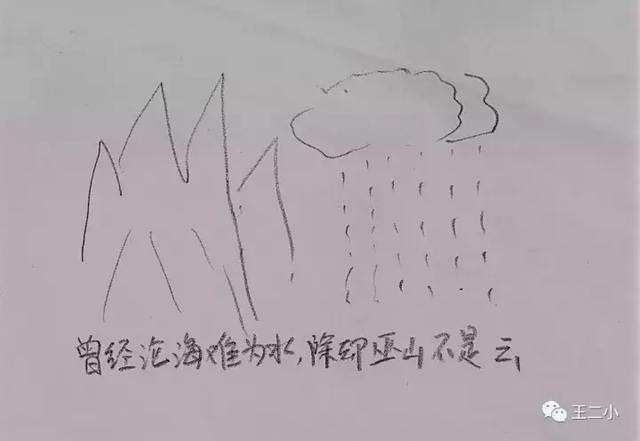 曾经沧海难为水,除却巫山不是云
王二小